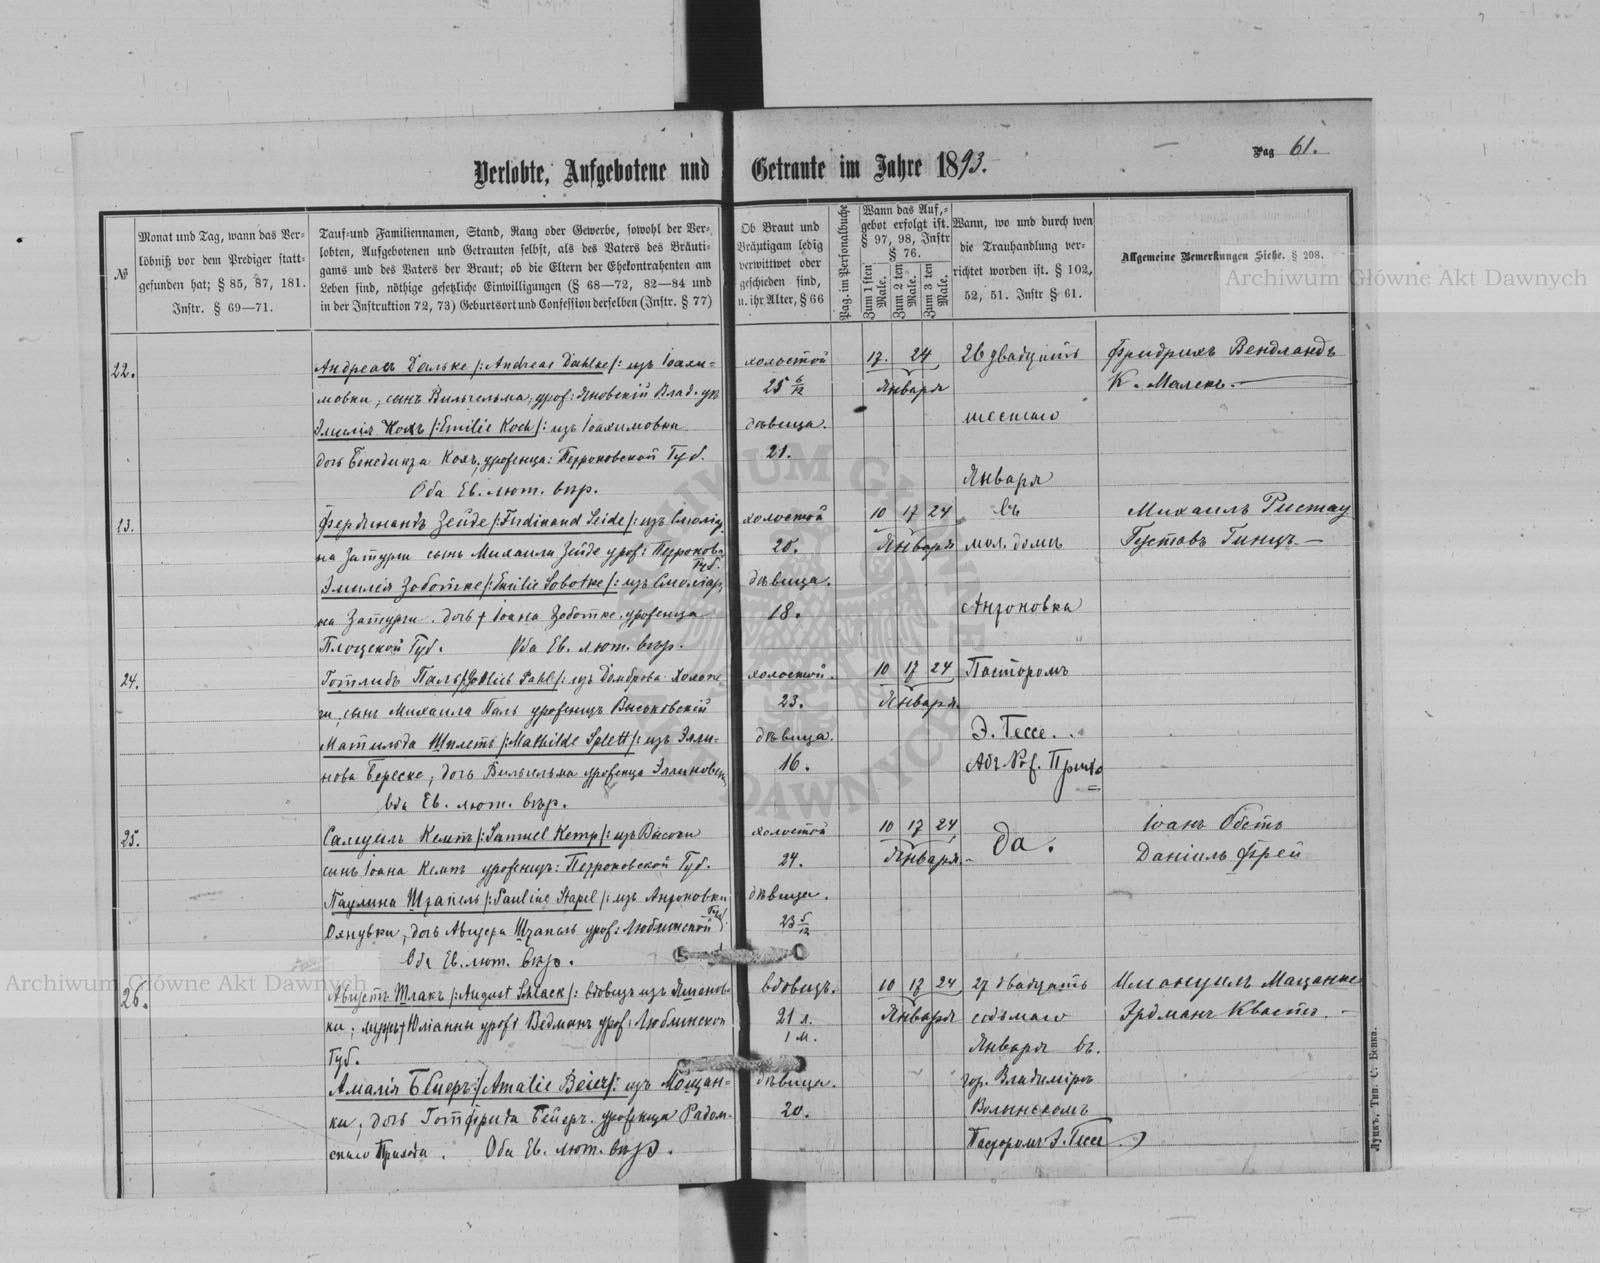 Pag 61.
Verlobte, Aufgebotene und Getraute im Jahre 1893.
№
Monat und Tag, wann das Ver=
löbniß vor dem Prediger statt=
gefunden hat; § 85, 87, 181.
Instr. § 69—71.
Tauf=und Familiennamen, Stand, Rang oder Gewerbe, sowohl der Ver=
lobten, Aufgebotenen und Getrauten selbst, als des Vaters des Bräuti=
gams und des Vaters der Braut; ob die Eltern der Ehekontrahenten am
Leben sind, nöthige gesetzliche Einwilligungen (§ 68—72, 82—84 und
in der Instruktion 72, 73) Geburtsort und Confession derselben (Instr. § 77)
Ob Braut und
Bräutigam ledig
verwittwet oder
geschieden sind,
u. ihr Alter, § 66
Pag. im Personalbuche
Wann das Auf,=
gebot erfolgt ist.
§ 97, 98, Instr
§ 76.
Zum 1 sten
Male.
Zum 2 ten
Male.
Zum 3 ten
Male.
Wann, wo und durch wen
die Trauhandlung ver=
richtet worden ist. § 102,
52, 51. Instr § 61.
Allgemeine Bemerkungen Siehe. § 208.
Archiwum Główne Akt Dawnych
22.
Андреасъ Дальке /:Andreas Dahlke/: изъ Іоахи=
мовки, сынъ Вильгельма, уроf: Яновскій Влад. ук
Эмилія Кохъ /:Emilie Koch/: изъ Іоахимовки
дочь Бенедикта Кохъ, уроfенца: Петроковской Губ.
Оба Ев. лют. вѣр.
холостой
25 6/12
дѣвица.
21.
17. 24
Января
26 двадцать
шестаго
Января
въ
мол. домѣ
Антоновка
Пасторомъ
Э. Гессе.
Фридрихъ Вендландъ
К. Малекъ.
23.
Фердинандъ Зейде /:Ferdinand Seide/: изъ
на Затурци сынъ Михаила Зейде уроf: Петроков.
Губ.
Эмилія Зоботке /:Emilie Sobotke/: изъ
на Затурци. дочь † Іоана Зоботке. уроfенца
Плоцкой Губ. Оба Ев. лют. вѣр.
холостой
20.
дѣвица.
18.
10 17 24
Января
Михаилъ Ристау
Густавъ Гинцъ
24.
Готлибъ Паль /:Gottlieb Pahl/: изъ Домброва
сынъ Михаила Паль уроfенцъ
Матильда Шплетъ /:Mathilde Splett/: изъ Элли=
нова Береске, дочь Вильгельма уроfенца
Оба Ев. лют. вѣр.
холостой.
23.
дѣвица.
16.
10 17 24
Января.
25.
Самуилъ Кемпъ /:Samuel Kemp/: изъ Высоки
сынъ Іоана Кемпъ уроfенцъ: Петроковской Губ.
Паулина Штапель /:Pauline Stapel/: изъ Антоновки
дочь Августа Штапель уроf: Люблинской Губ
Оба Ев. лют. вѣр.
холостой
24.
дѣвица.
23 5/12
10 17 24
Января
да.
Іоанъ Обстъ
Даніилъ Фрей
26.
Августъ Шлакъ /:August Schlack/: вдовецъ изъ Яшенов=
ки; Юліанны уроf: Ведманъ уроf: Люблинской
Губ.
Амалія Бейеръ /:Amalie Beier/: изъ Мощан=
ки; дочь Готфрида Бейеръ. уроfенца Радом=
скаго Прихода. Оба Ев. лют. вѣр.
вдовецъ.
21 л.
1 м.
дѣвица.
20.
10 17 24
Января
27 двадцать
седьмаго
Января въ.
гор. Владимірѣ
Волынскомъ
Пасторомъ Э. Гессе
Имануилъ
Эрдманъ Квастъ.
Луцкъ, Тип. С. Бенка.
ARCHIWUM GŁÓWNE AKT DAWNYCH
Archiwum Główne Akt Dawnych